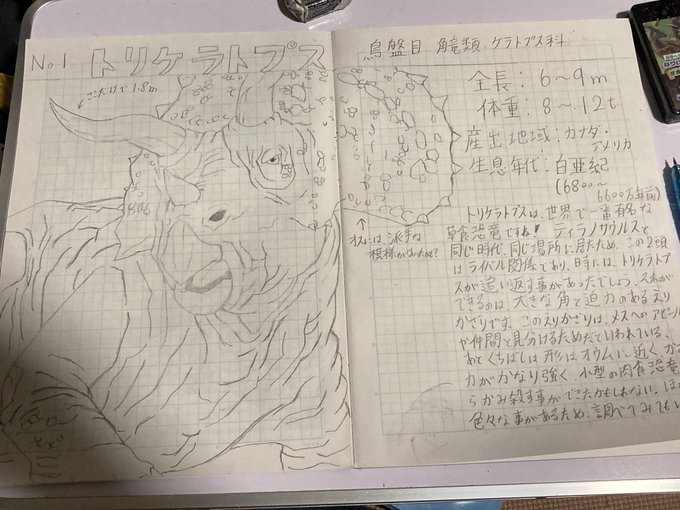 No.1 トリケラトプス
ここだけで1.8m
鳥盤目 角竜類 ケラトプス科
全長：6〜9m
体重：8〜12t
産出地域：カナダ・
アメリカ
生息年代：白亜紀
(6800〜
6600万年前)
オスには、派手な
模様があったかも?
トリケラトプスは、世界で一番有名な
草食恐竜ですね! ティラノサウルスと
同じ時代、同じ場所に居たため、この2頭
はライバル関係であり、時には、トリケラトプ
スが追い返す事があったでしょう。それが
できるのは、大きな角と迫力のあるえり
かざりです。このえりかざりは、メスへのアピール
や仲間と見分けるためだといわれている。
あと、くちばしは形はオウムに近く、か
力がかなり強く、小型の肉食恐竜
らかみ殺す事ができたかもしれない。ほ
色々な事があるため、調べてみても